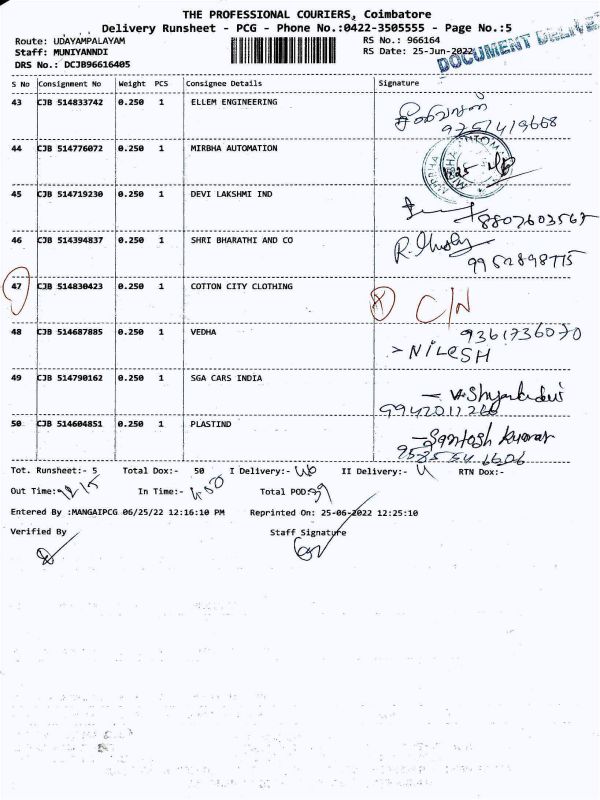 THE PROFESSIONAL COURIERS, Coimbatore
Delivery Runsheet - PCG - Phone No.:0422-3505555 - Page No.:5
Route: UDAYAMPALAYAM RS No.: 966164
Staff: MUNIYANNDI RS Date: 25-Jun-2022
DRS No.: DCJB96616405
DOCUMENT DELIVE
S No Consignment No Weight PCS Consignee Details Signature
43 CJB 514833742 0.250 1 ELLEM ENGINEERING
44 CJB 514776072 0.250 1 MIRBHA AUTOMATION
45 CJB 514719230 0.250 1 DEVI LAKSHMI IND
8807603567
46 CJB 514394837 0.250 1 SHRI BHARATHI AND CO
9952898775
47 CJB 514830423 0.250 1 COTTON CITY CLOTHING C/N
9361736070
48 CJB 514687885 0.250 1 VEDHA NILESH
49 CJB 514790162 0.250 1 SGA CARS INDIA
50 CJB 514604851 0.250 1 PLASTIND - Santosh Kumar
Tot. Runsheet:- 5 Total Dox:- 50 I Delivery:- II Delivery:- RTN Dox:-
Out Time: In Time:- Total POD:
Entered By :MANGAIPCG 06/25/22 12:16:10 PM Reprinted On: 25-06-2022 12:25:10
Verified By Staff Signature